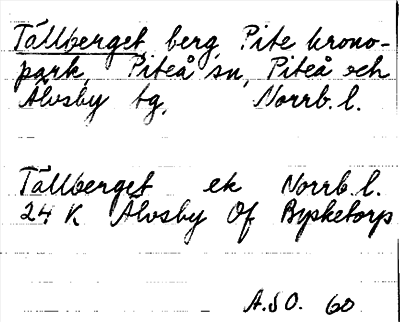 Tällberget, berg, Pite krono-
park, Piteå sn, Piteå och
Älvsby tg, Norrb. l.
Tällberget ek Norrb. l.
24 K Älvsby Of Bysketorp
A.S.O. 60